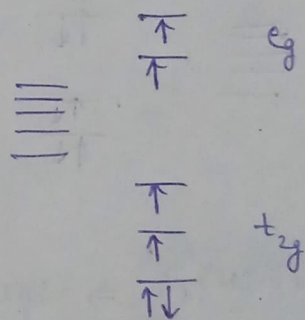 e_g
t_2g